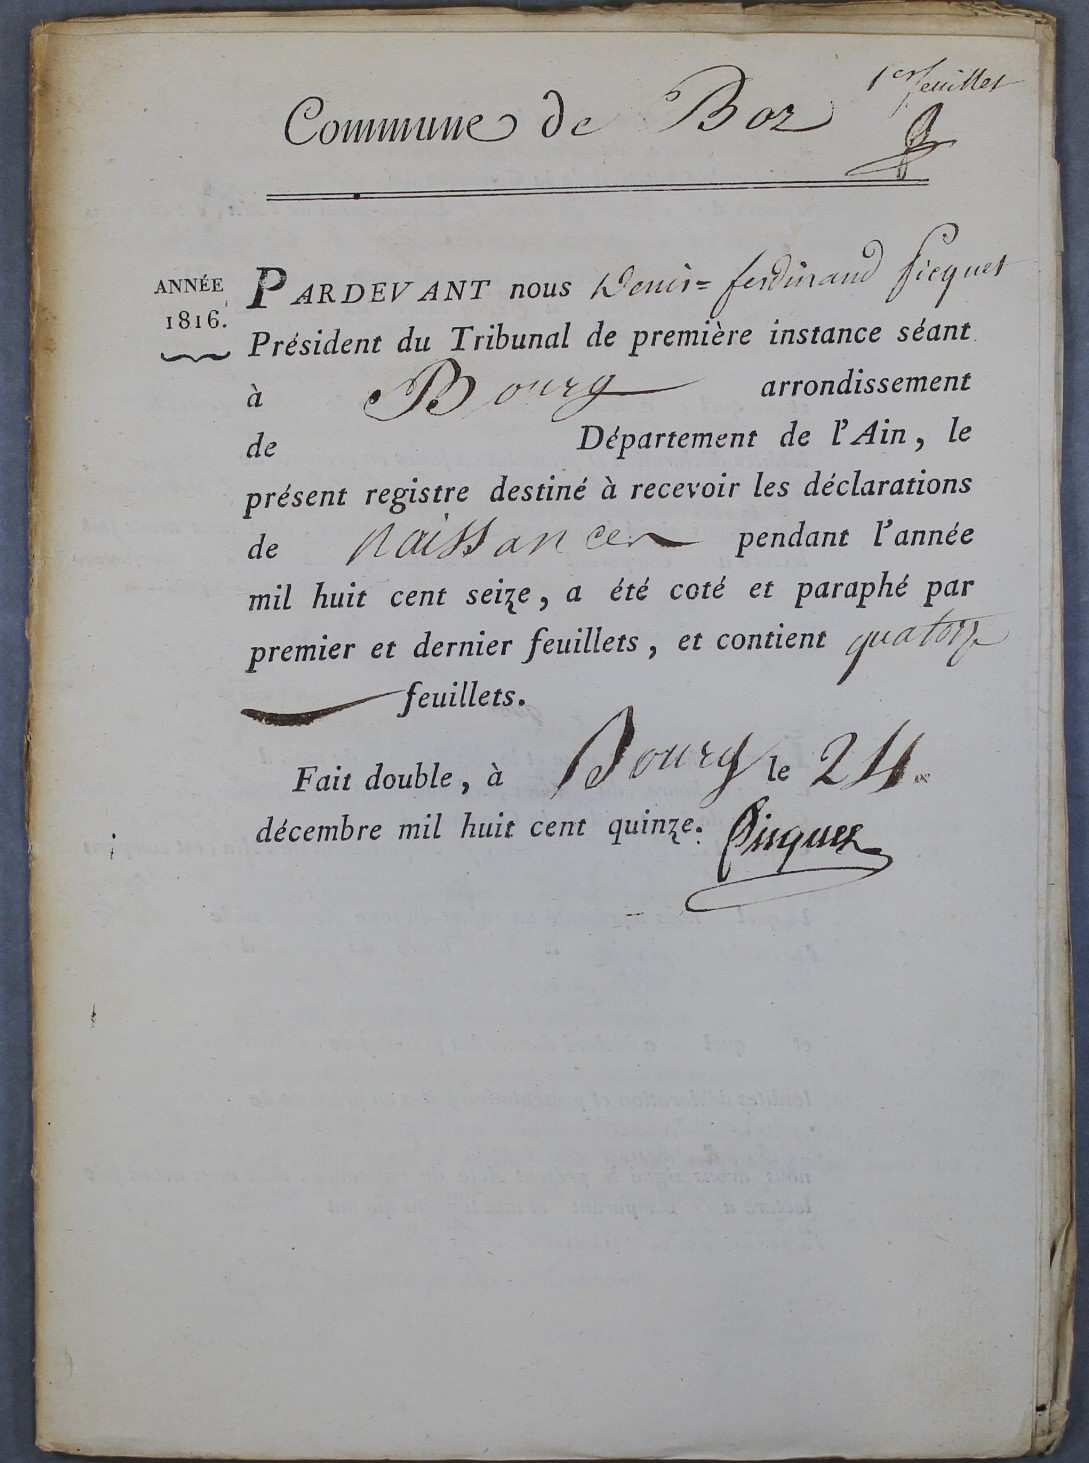 1er feuillet
Commune de Boz
ANNÉE
1816.
PARDEVANT nous Denis= ferdinand Picquet
Président du Tribunal de première instance séant
à Bourg arrondissement
de Département de l'Ain, le
présent registre destiné à recevoir les déclarations
de naissances pendant l'année
mil huit cent seize, a été coté et paraphé par
premier et dernier feuillets, et contient quatorze
feuillets.
Fait double, à Bourg le 24
décembre mil huit cent quinze. Picquet